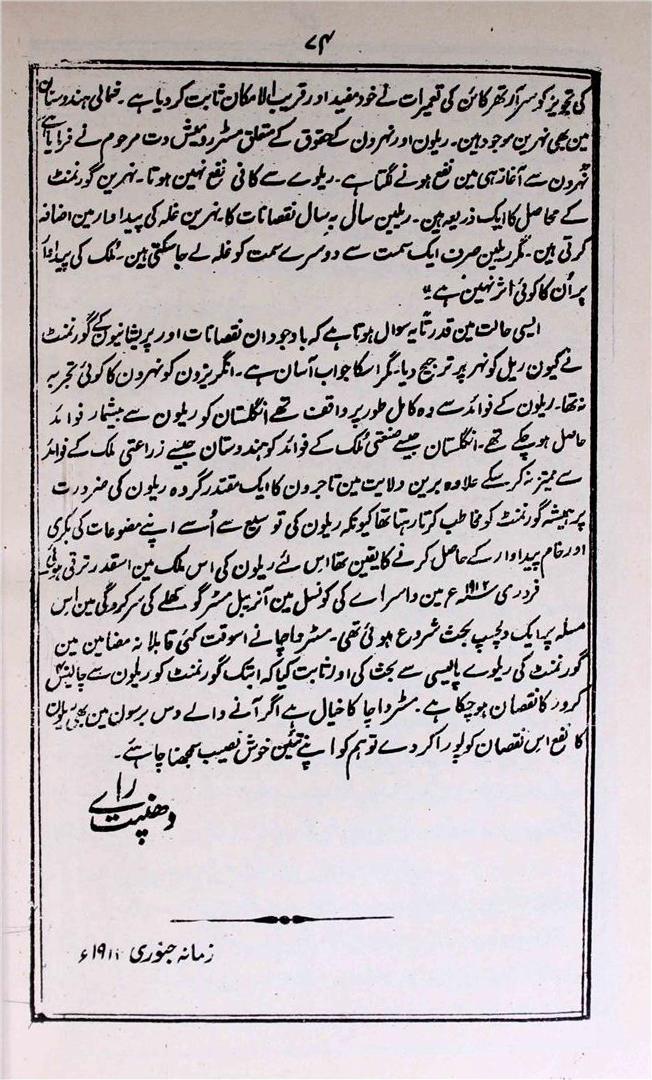 ۷۴
کی تجویز کو سر آرتھر کاٹن کی تعمیرات نے خود مفید اور قریب الامکان ثابت کر دیا ہے۔ شمالی ہندوستان
مین بھی نہرین موجود ہین۔ ریلون اور نہرون کے حقوق کے متعلق مسٹر رومیش دت مرحوم نے فرمایا ہے
نہرون سے آغاز ہی مین نفع ہونے لگتا ہے۔ ریلوے سے کافی نفع نہین ہوتا۔ نہرین گورنمنٹ
کے محاصل کا ایک ذریعہ ہین۔ ریلین سال بہ سال نقصانات کا۔ نہرین غلہ کی پیداوار مین اضافہ
کرتی ہین۔ مگر ریلین صرف ایک سمت سے دوسرے سمت کو غلہ لے جا سکتی ہین۔ ملک کی پیداوار
پر اُن کا کوئی اثر نہین ہے"۔
ایسی حالت مین قدرتاً یہ سوال ہوتا ہے کہ باوجود ان نقصانات اور پریشانیون کے گورنمنٹ
نے کیون ریل کو نہر پر ترجیح دیا۔ مگر اسکا جواب آسان ہے۔ انگریزون کو نہرون کا کوئی تجربہ
نہ تھا۔ ریلون کے فوائد سے وہ کامل طور پر واقف تھے انگلستان کو ریلون سے بیشمار فوائد
حاصل ہو چکے تھے۔ انگلستان جیسے صنعتی ملک کے فوائد کو ہندوستان جیسے زراعتی ملک کے فوائد
سے ممیّز نہ کر سکے علاوہ برین ولایت مین تاجرون کا ایک مقتدر گروہ ریلون کی ضرورت
پر ہمیشہ گورنمنٹ کو مخاطب کرتا رہتا تھا کیونکہ ریلون کی توسیع سے اُسے اپنے مصنوعات کی بکری
اور خام پیداوار کے حاصل کرنے کا یقین تھا اس لئے ریلون کی اس ملک مین اسقدر ترقی ہوئی
فروری ۱۹۱۲ء مین وائسراے کی کونسل مین آنریبل مسٹر گوکھلے کی سرکردگی مین اس
مسئلہ پر ایک دلچسپ بحث شروع ہوئی تھی۔ مسٹر واچا نے اسوقت کئی قابلانہ مضامین مین
گورنمنٹ کی ریلوے پالیسی سے بحث کی اور ثابت کیا کہ ابتک گورنمنٹ کو ریلون سے چالیس
کرور کا نقصان ہو چکا ہے۔ مسٹر واچا کا خیال ہے اگر آنے والے دس برسون مین بھی ریلون
کا نفع اس نقصان کو پورا کر دے تو ہم کو اپنے تئین خوش نصیب سمجھنا چاہئے۔
دھنپت راے
زمانہ جنوری